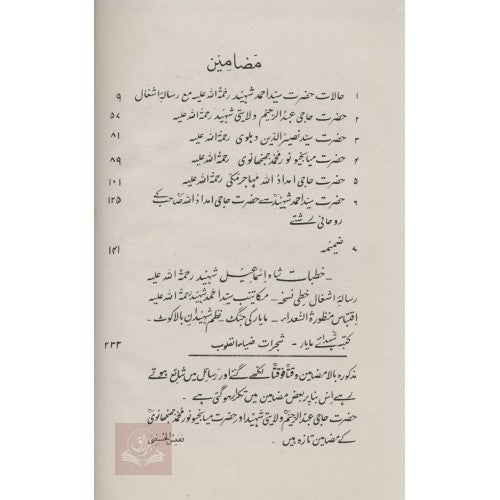 مضامین
۱ حالات حضرت سید احمد شہید رحمۃ اللہ علیہ مع رسالۂ اشغال ۹
۲ حضرت حاجی عبدالرحیم ولایتی شہید رحمۃ اللہ علیہ ۵۷
۳ حضرت سید نصیر الدین دہلوی رحمۃ اللہ علیہ ۸۱
۴ حضرت میانجیو نور محمد جھنجھانوی رحمۃ اللہ علیہ ۸۹
۵ حضرت حاجی امداد اللہ مہاجر مکی رحمۃ اللہ علیہ ۱۰۱
۶ حضرت سید احمد شہیدؒ سے حضرت حاجی امداد اللہ صاحبؒ کے ۱۳۵
روحانی رشتے
۷ ضمیمہ ۱۴۱
خطبات شاہ اسماعیل شہید رحمۃ اللہ علیہ
رسالہ اشغال خطی نسخہ - مکاتیب سید احمد شہید رحمۃ اللہ علیہ
اقتباس منظورۃ السعداء - مایار کی جنگ - نظم شہیدان بالاکوٹ -
کتبہ شہدائے مایار - شجرات ضیاء القلوب ۲۳۳
مذکورہ بالا مضامین وقتاً فوقتاً لکھے گئے اور رسائل میں شائع ہوتے
رہے اس بنا پر بعض مضامین میں تکرار ہو گئی ہے -
حضرت حاجی عبدالرحیم ولایتی شہید اور حضرت میانجیو نور محمد جھنجھانوی
کے مضامین تازہ ہیں - نفیس الحسینی